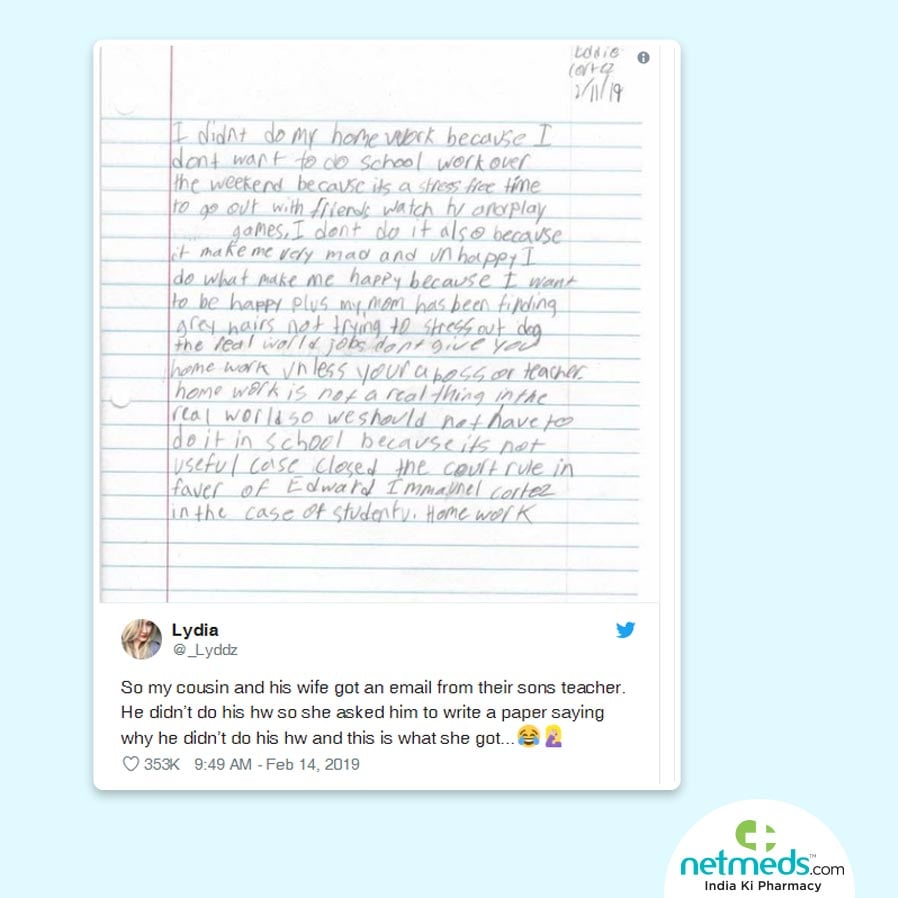 Eddie
Cortez
2/11/19
I didnt do my home work because I
dont want to do school work over
the weekend because its a stress free time
to go out with friends watch tv and play
games, I dont do it also because
it make me very mad and unhappy I
do what make me happy because I want
to be happy plus my mom has been finding
grey hairs not trying to stress out dog
the real world jobs dont give you
home work unless your a boss or teacher.
home work is not a real thing in the
real world so we should not have to
do it in school because its not
useful case closed the court rule in
faver of Edward Immaunel cortez
in the case of student v. Home work
Lydia
@_Lyddz
So my cousin and his wife got an email from their sons teacher.
He didn't do his hw so she asked him to write a paper saying
why he didn't do his hw and this is what she got...😂🤦🏼‍♀️
♡ 353K 9:49 AM - Feb 14, 2019
netmeds.com™
India Ki Pharmacy